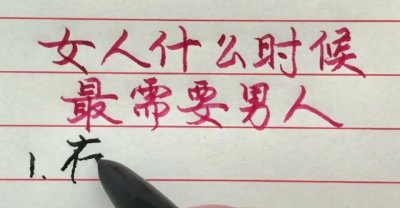 女人什么时候
最需要男人
1.